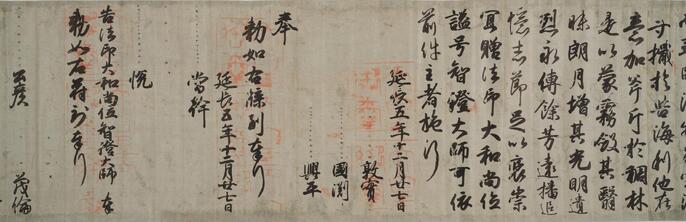 於苦海利他在
意加斧斤於稠林
是以蒙霧斂其翳
昧朗月増其光明遺
烈永傳餘芳遠播追
憶志節足以褒崇
冝贈法印大和尚位
諡号智證大師可依
前件主者施行
延長五年十二月廿七日
敦實
國淵
興平
奉
勅如右牒到奉行
延長五年十二月廿七日
當幹
悦
告法印大和尚位智證大師奉
勅如右符到奉行
茂倫